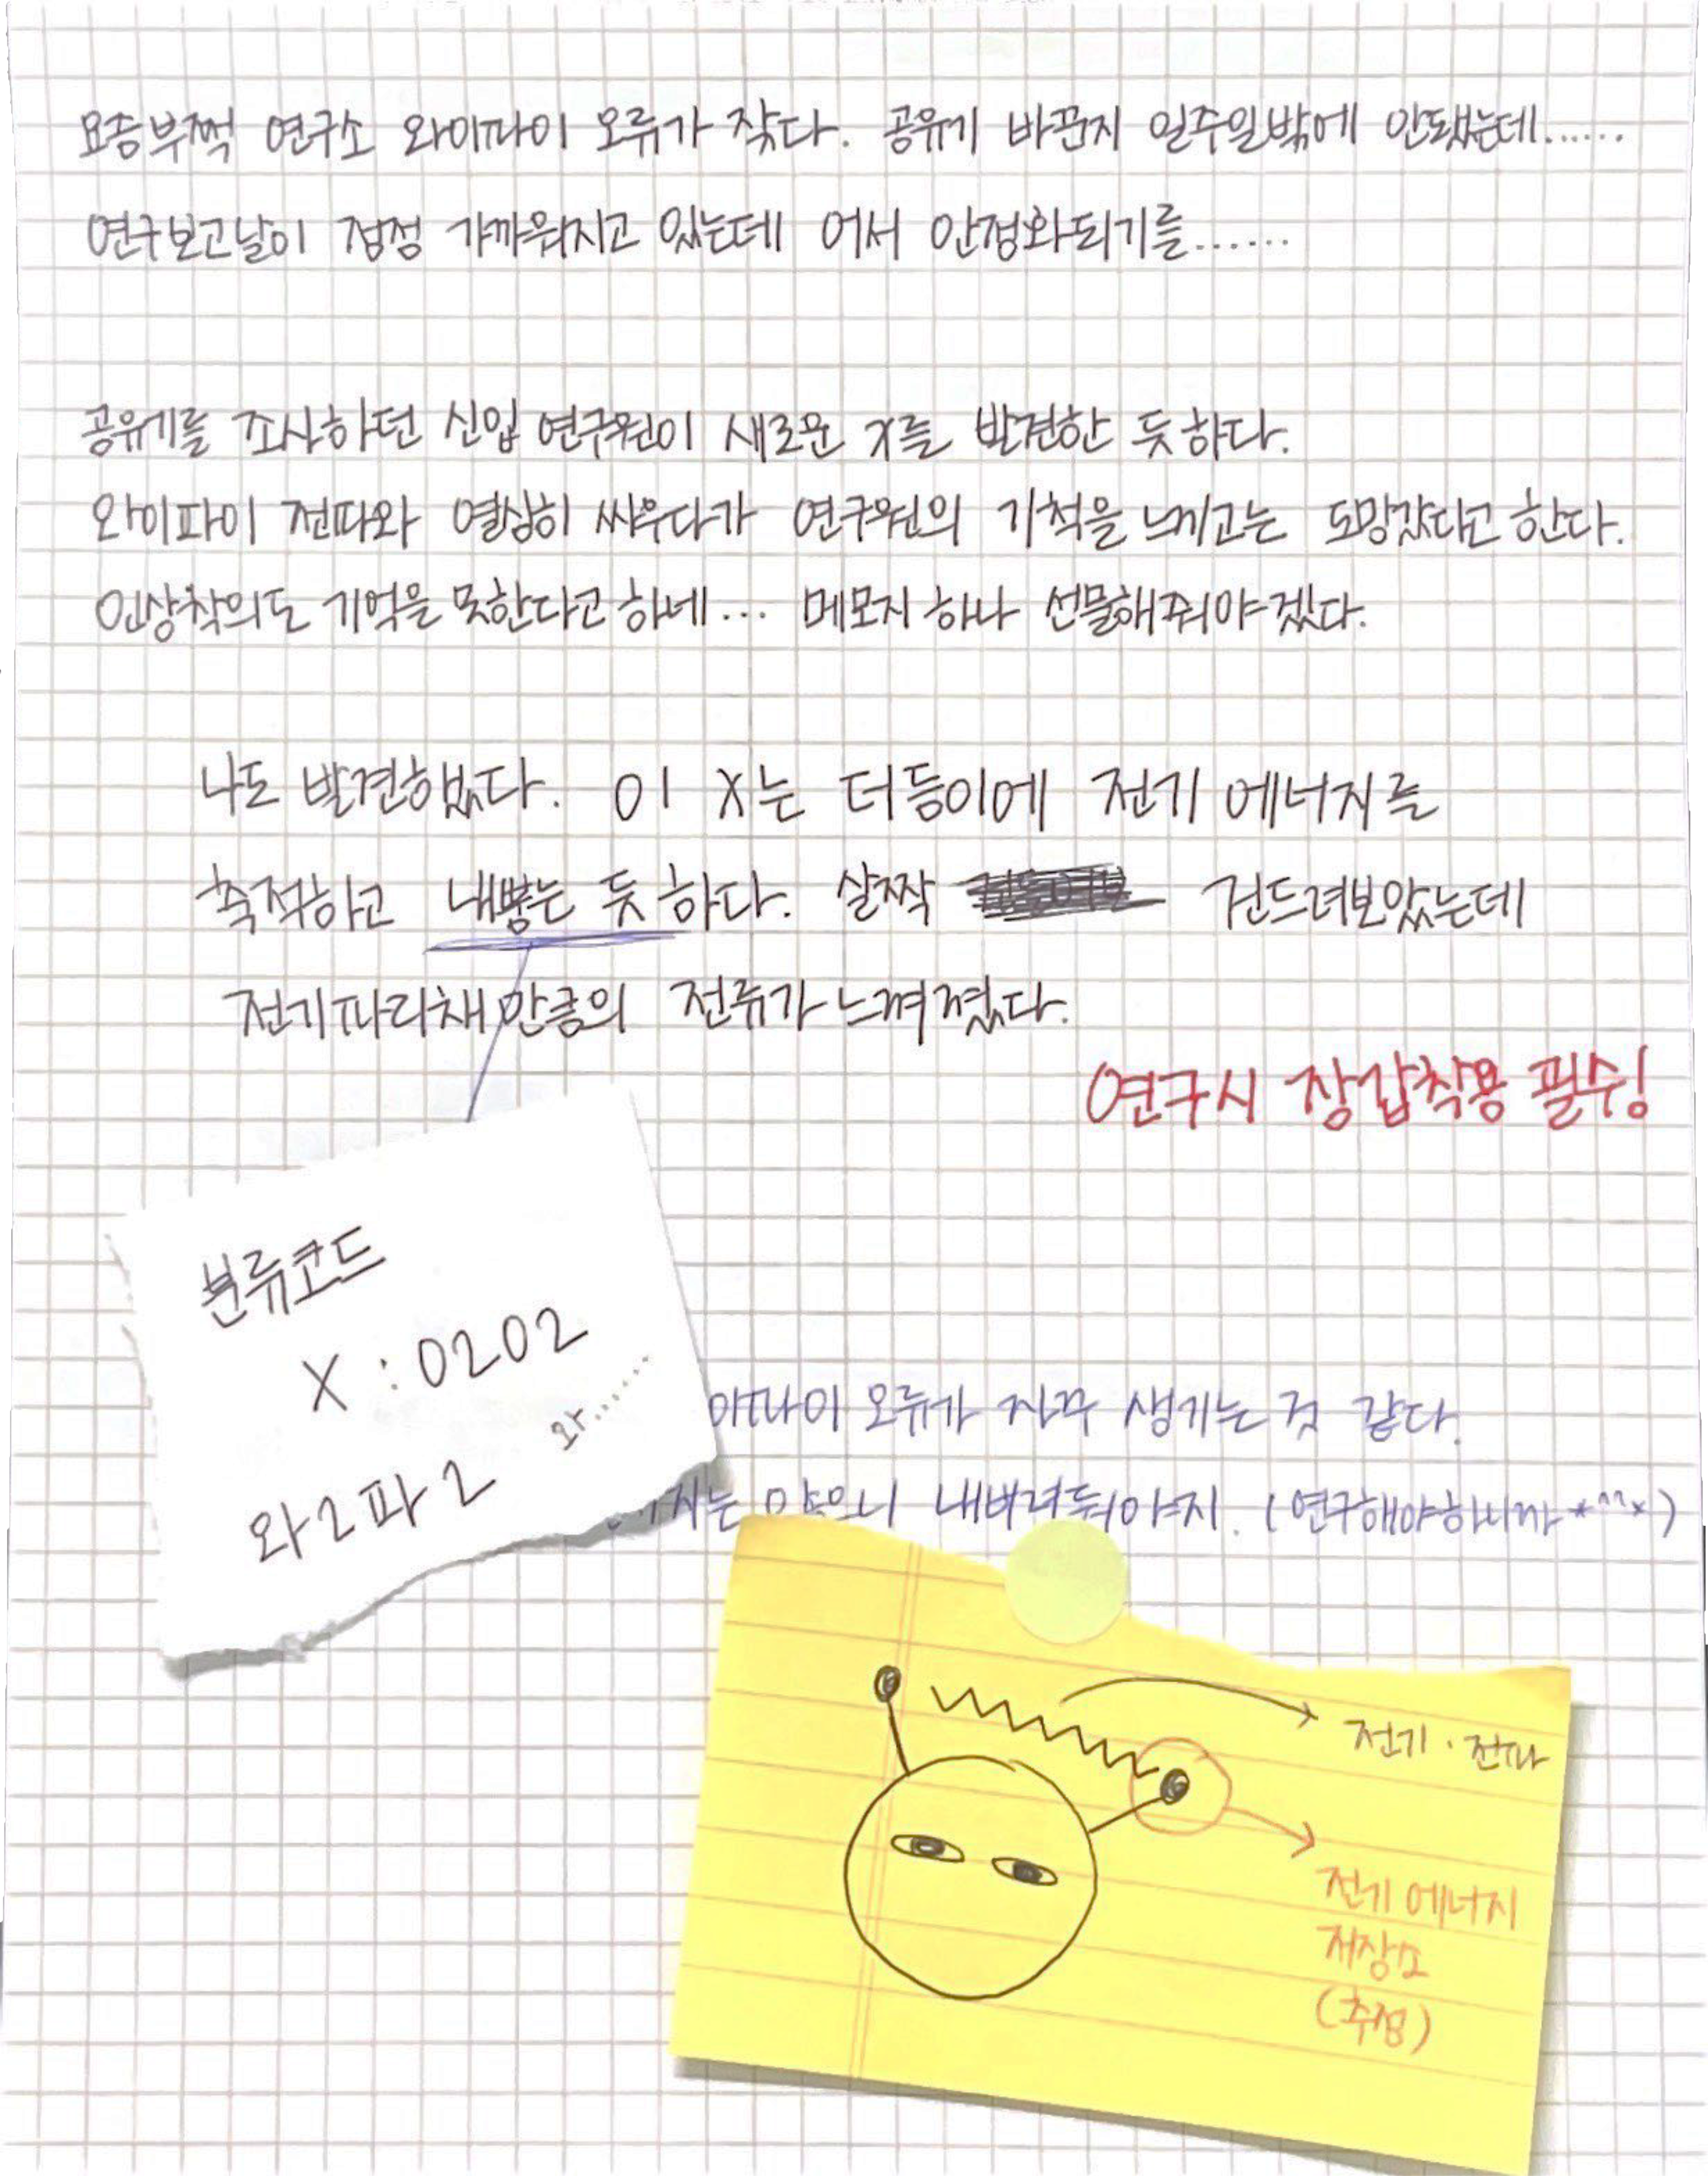 요즘부쩍 연구소 와이파이 오류가 잦다. 공유기 바꾼지 일주일밖에 안됐는데......
연구보고날이 점점 가까워지고 있는데 어서 안정화되기를......
공유기를 조사하던 신입 연구원이 새로운 X를 발견한 듯하다.
와이파이 전파와 열심히 싸우다가 연구원의 기척을 느끼고는 도망갔다고 한다.
인상착의도 기억을 못한다고 하네... 메모지 하나 선물해줘야겠다.
나도 발견했다. 이 X는 더듬이에 전기 에너지를
축적하고 내뿜는 듯 하다. 살짝 건드려보았는데
전기파리채만큼의 전류가 느껴졌다.
연구시 장갑착용 필수!
분류코드
X : 0202
와......
와2파2
이파이 오류가 자꾸 생기는 것 같다.
내버려둬야지. (연구해야하니까 *^^*)
전기·전파
전기 에너지
저장소
(추정)